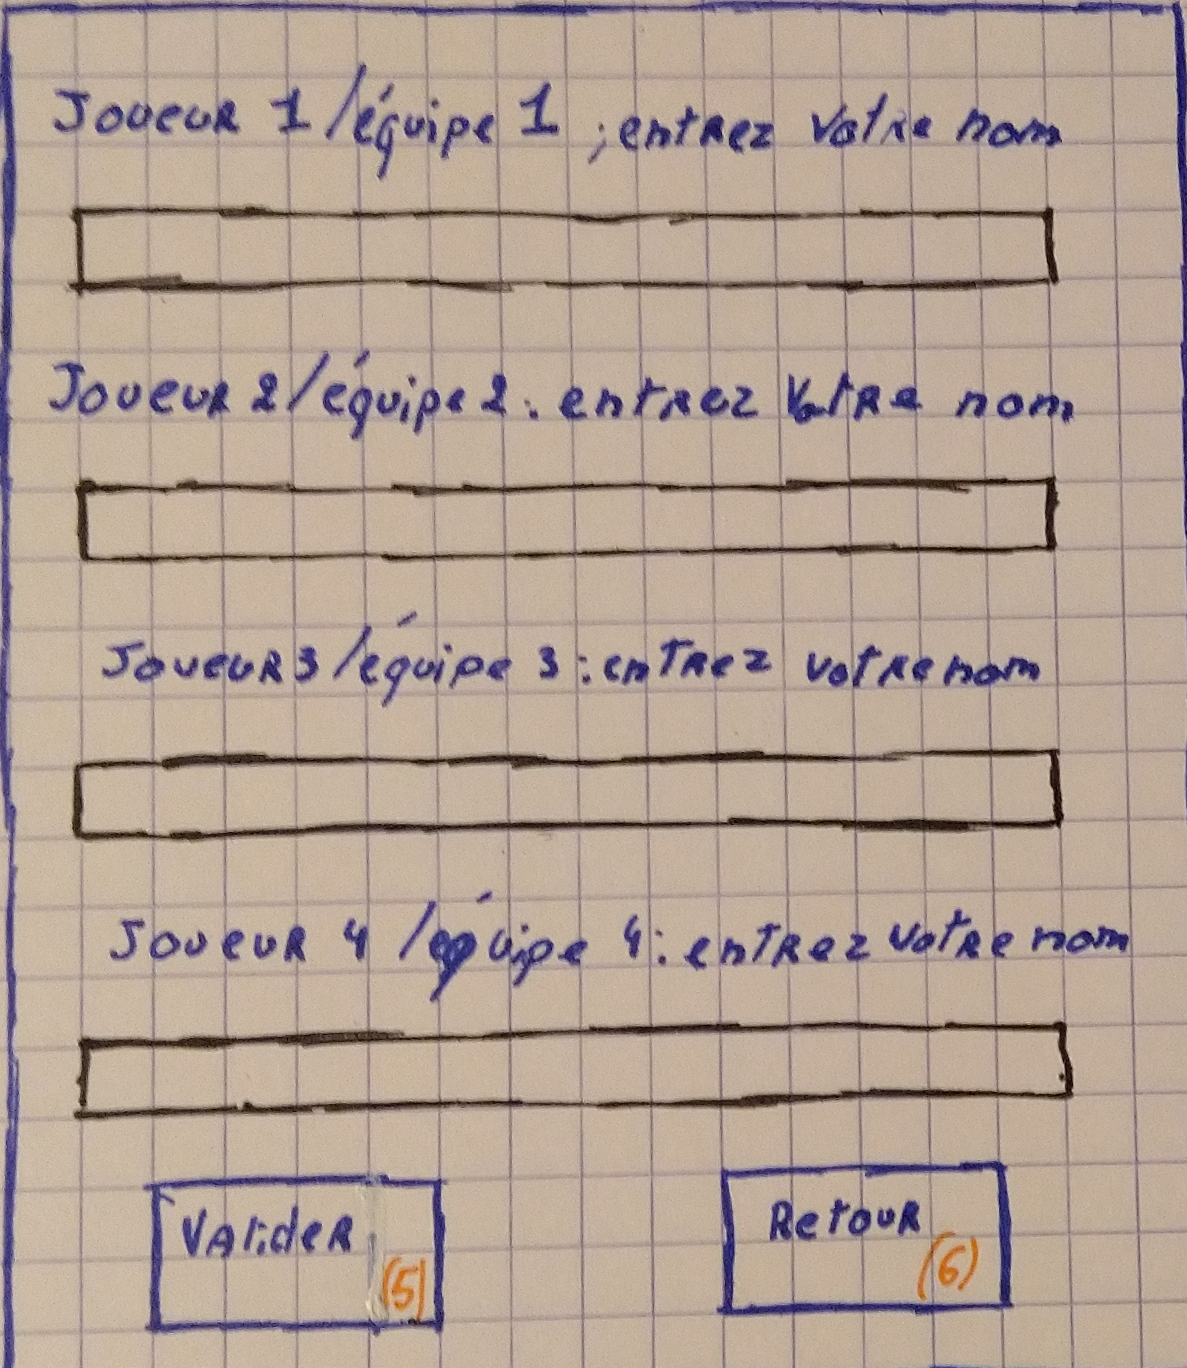 Joueur 1 /équipe 1 ; entrez votre nom
Joueur 2 / équipe 2 : entrez votre nom
Joueur 3 /équipe 3 : entrez votre nom
Joueur 4 /équipe 4 : entrez votre nom
Valider
(5)
Retour
(6)